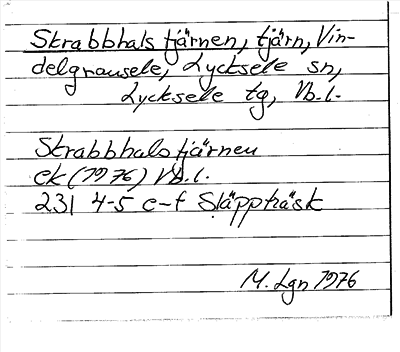 Skrabbhalstjärnen, tjärn, Vin-
delgransele, Lycksele sn,
Lycksele tg, Vb.l.
Skrabbhalstjärnen
ek (1976) Vb.l.
231 4-5 e-f Släppträsk
M. Lgn 1976